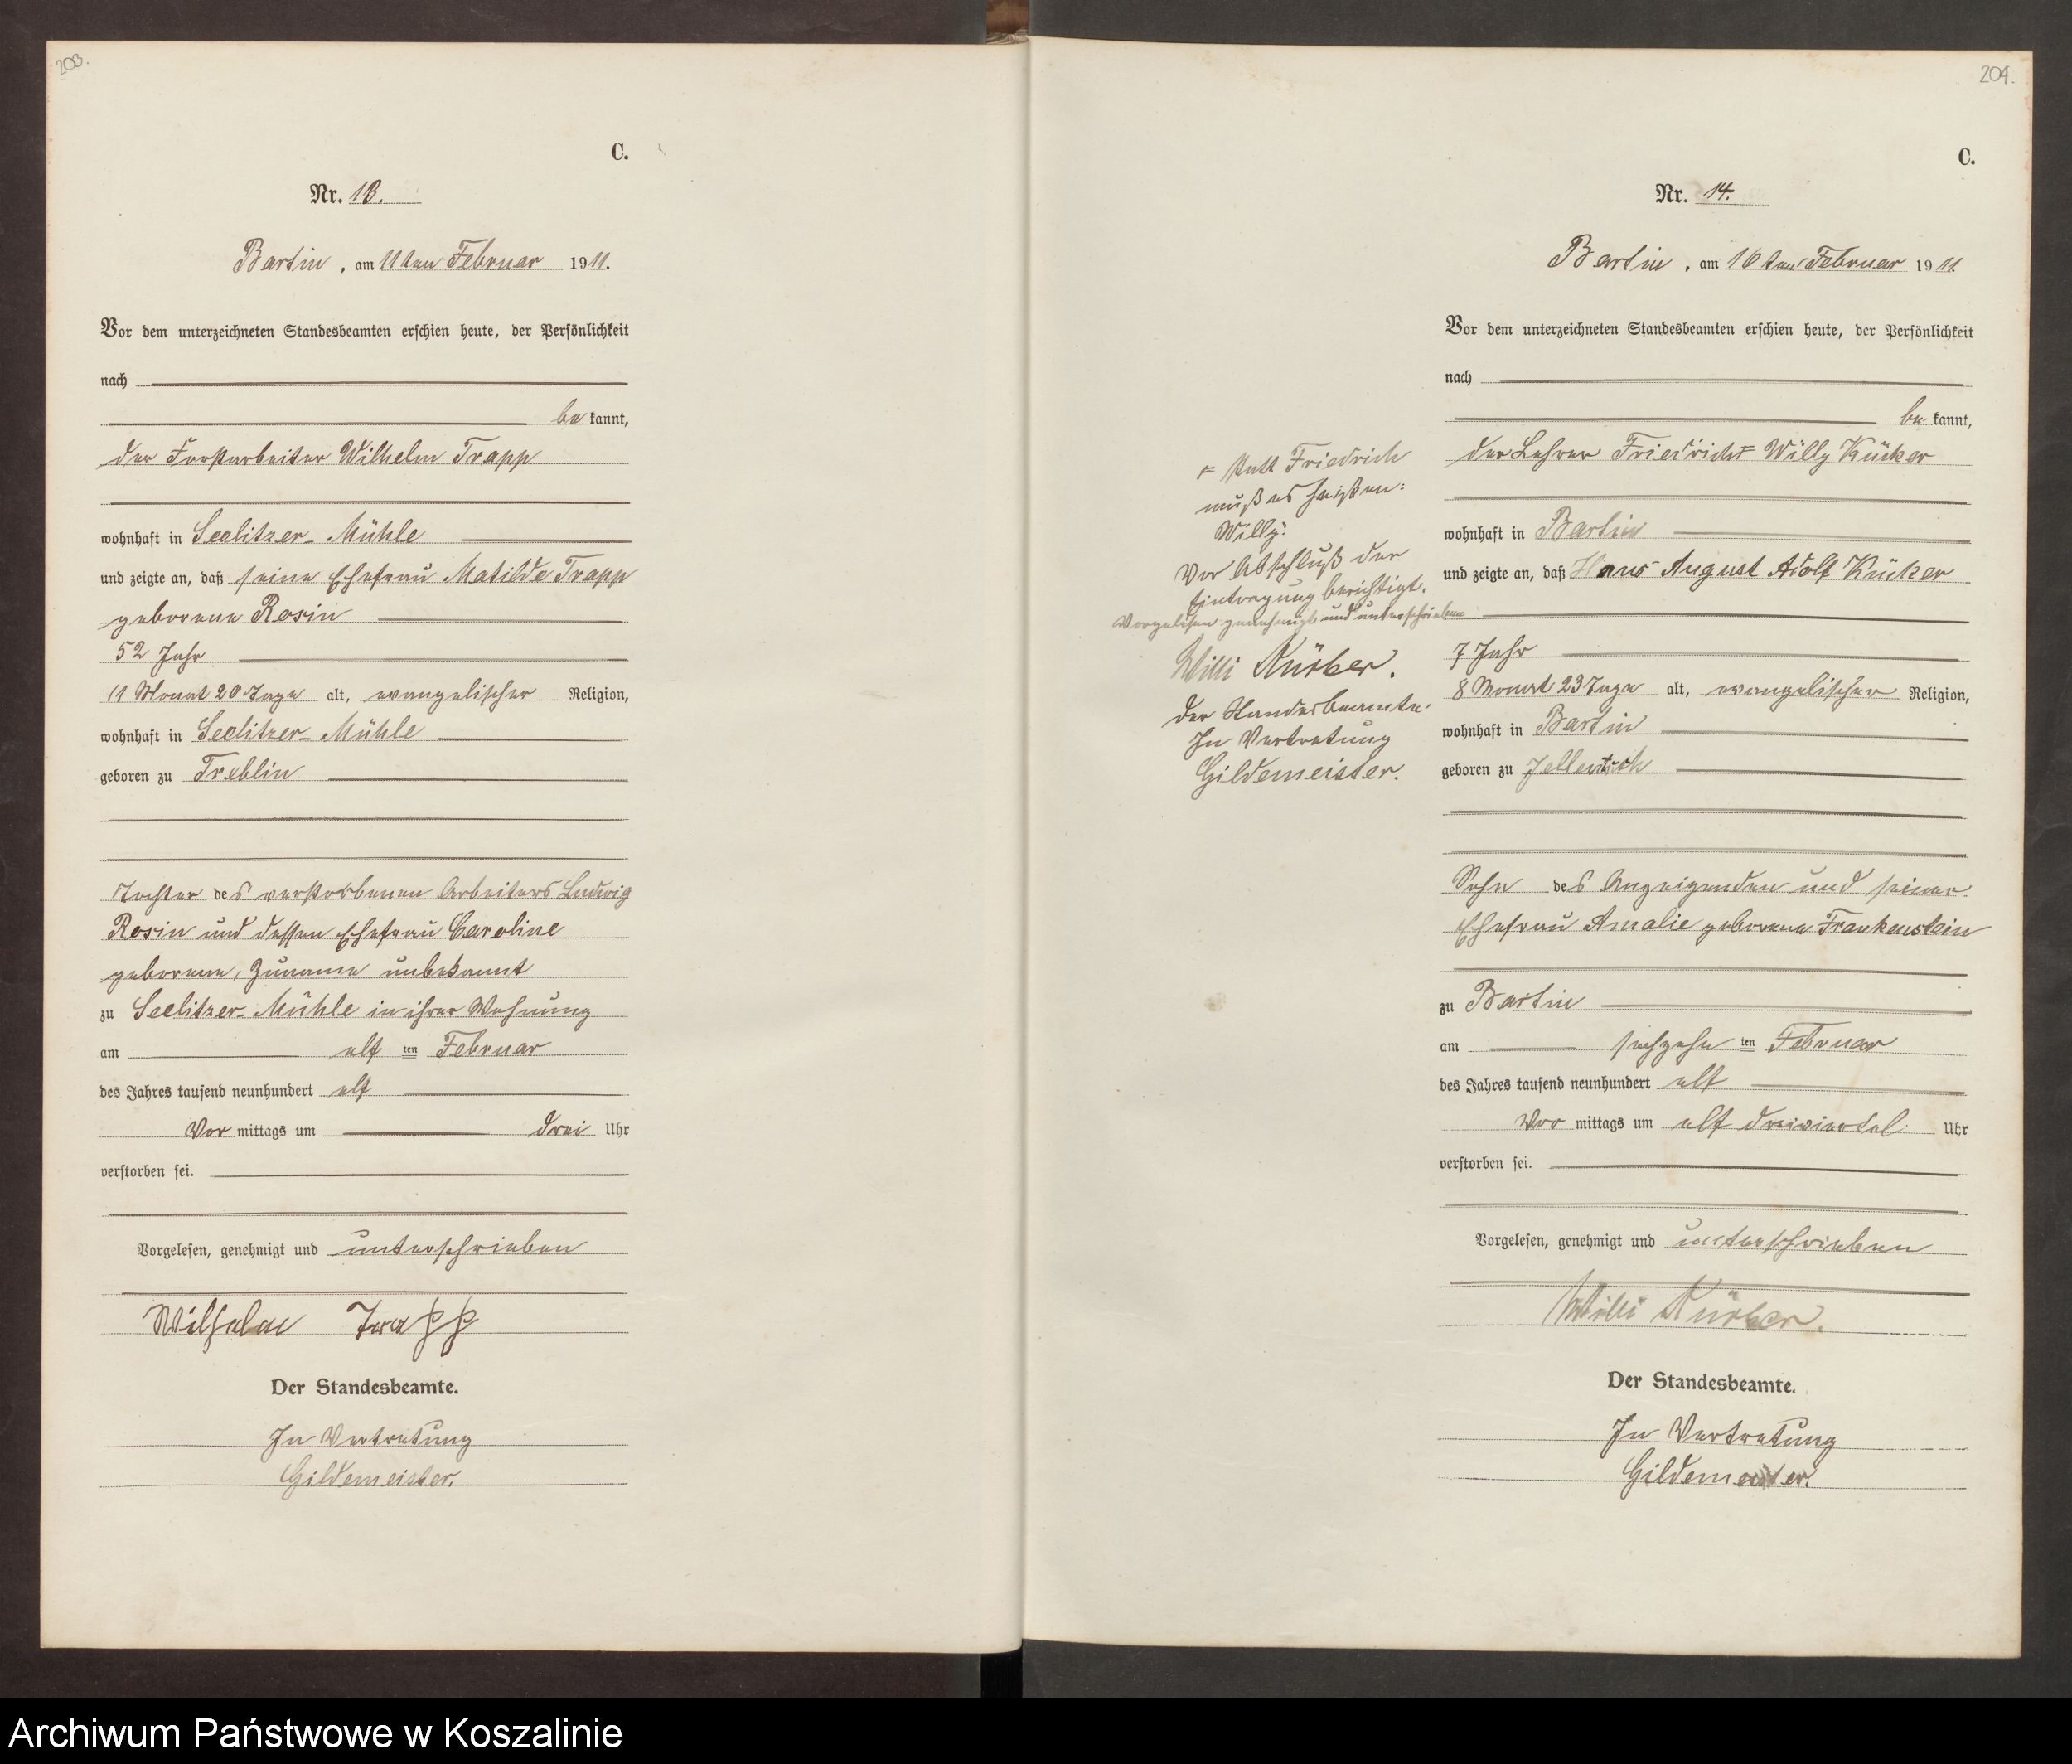 203.
C.
Nr. 13.
Bartin, am 11ten Februar 1911.
Vor dem unterzeichneten Standesbeamten erschien heute, der Persönlichkeit
nach
be kannt,
der Forstarbeiter Wilhelm Trapp
wohnhaft in Seelitzer-Mühle
und zeigte an, daß seine Ehefrau Matilde Trapp
geborene Rosin
52 Jahr
11 Monat 20 Tage alt, evangelischer Religion,
wohnhaft in Seelitzer-Mühle
geboren zu Treblin
Tochter des verstorbenen Arbeiters Ludwig
Rosin und dessen Ehefrau Caroline
geborene, Zuname unbekannt
zu Seelitzer-Mühle in ihrer Wohnung
am elf ten Februar
des Jahres tausend neunhundert elf
Vor mittags um drei Uhr
verstorben sei.
Vorgelesen, genehmigt und unterschrieben
Wilhelm Trapp
Der Standesbeamte.
In Vertretung
Gildemeister.
204.
C.
Nr. 14.
Bartin, am 16ten Februar 1911.
Vor dem unterzeichneten Standesbeamten erschien heute, der Persönlichkeit
nach
be kannt,
der Lehrer Friedrich Willy Kücker
wohnhaft in Bartin
und zeigte an, daß Hans August Adolf Kücker
7 Jahr
8 Monat 23 Tage alt, evangelischer Religion,
wohnhaft in Bartin
geboren zu Jellentsch
Sohn des Anzeigenden und seiner
Ehefrau Amalie geborene Frankenstein
zu Bartin
am sechzehn ten Februar
des Jahres tausend neunhundert elf
Vor mittags um elf dreiviertel Uhr
verstorben sei.
Vorgelesen, genehmigt und unterschrieben
Willi Kücker.
Der Standesbeamte.
In Vertretung
Gildemeister.
Statt Friedrich
muß es heißen:
Willy.
Vor Abschluß der
Eintragung berichtigt.
Vorgelesen genehmigt und unterschrieben
Willi Kücker.
Der Standesbeamte.
In Vertretung
Gildemeister.
Archiwum Państwowe w Koszalinie